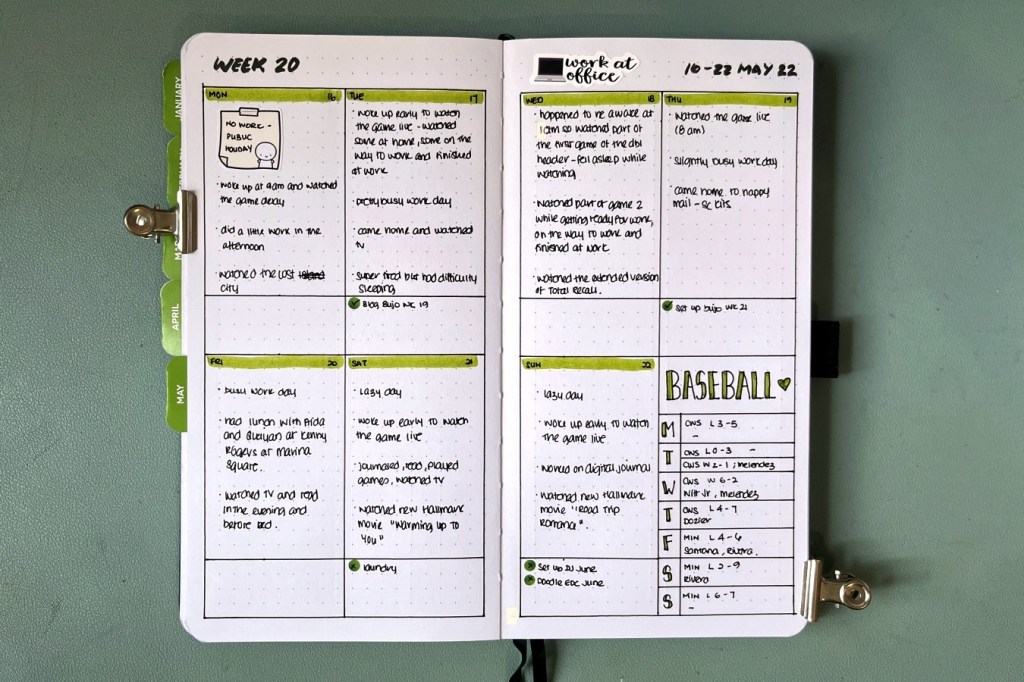 WEEK 20
JANUARY
APRIL
MAY
MON 16
NO WORK -
PUBLIC
HOLIDAY
· woke up at 9am and watched
the game delay
· did a little work in the
afternoon
· watched the Lost
city
TUE 17
· woke up early to watch
the game live - watched
some at home, some on the
way to work and finished
at work
· pretty busy work day
· came home and watched
tv
· super tired but had difficulty
sleeping
Blog Bujo WC 19
FRI 20
· busy work day
· had lunch with Aida
and at Kenny
Rogers at marina
square.
· watched TV and read
in the evening and
before bed.
SAT 21
· Lazy day
· woke up early to watch
the game live
· journaled, read, played
games, watched TV
· watched new Hallmark
movie "Warming up to
You"
laundry
work at
office
16-22 MAY 22
WED 18
· happened to be awake at
1am so watched part of
the first game of the dbl
header - fell asleep while
watching
· watched part of game 2
while getting ready for work,
on the way to work and
finished at work
· watched the extended version
of Total Recall.
THU 19
· watched the game live
(8 am)
· slightly busy work day
· came home to happy
mail - SC kits
Set up bujo WC 21
SUN 22
· lazy day
· woke up early to watch
the game live
· worked on digital journal
· watched new Hallmark
movie "Road Trip
Romance".
Set up BJ June
Doodle EDC June
BASEBALL
M CWS L 3-5
-
T CWS L 0-3 -
CWS W 2-1 ; Melendez
W CWS W 6-2
Witt Jr, Melendez
T CWS L 4-7
Dozier
F MIN L 4-6
Santana, Rivera.
S MIN L 2-9
Rivera
S MIN L 6-7
-